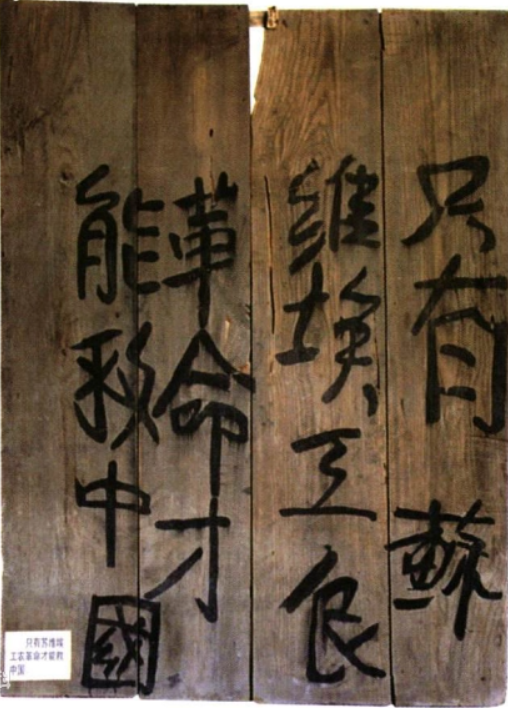 只有蘇
維埃工农
革命才
能救中國
只有苏维埃
工农革命才能救
中国